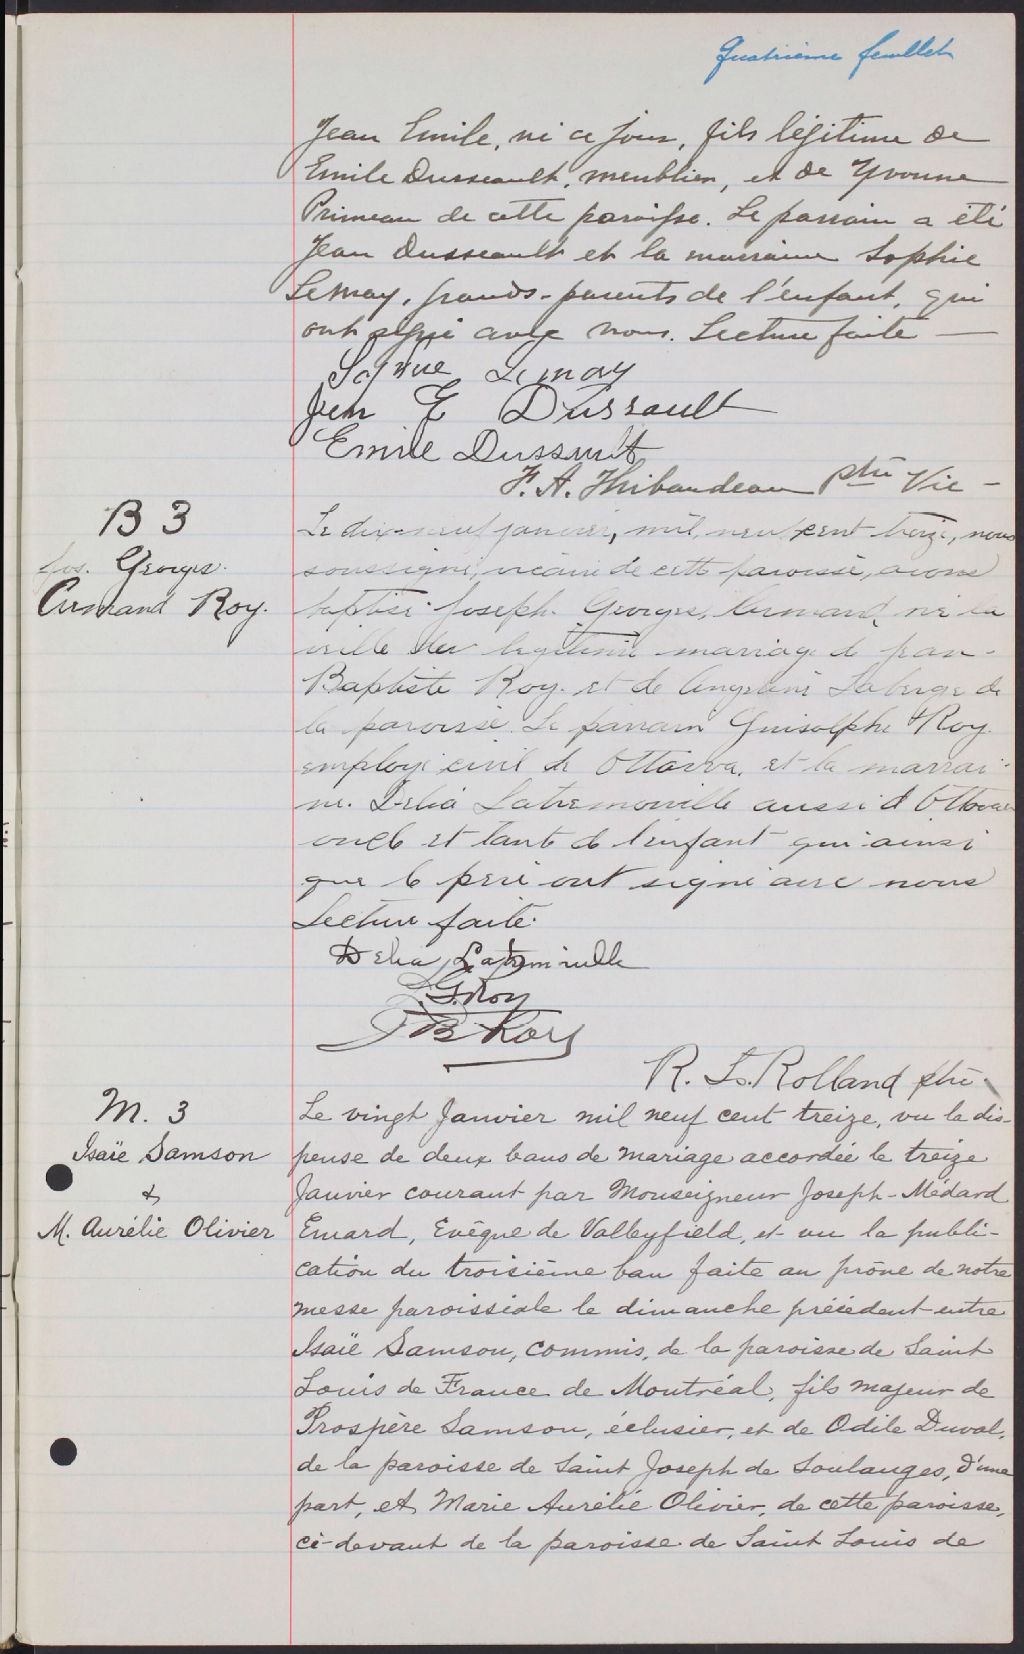 Quatrième feuillet
Jean Emile, né ce jour, fils légitime de
Emile Dusseault, meublier, et de Yvonne
Primeau de cette paroisse. Le parrain a été
Jean Dusseault et la marraine Sophie
Lemay, grands-parents de l'enfant, qui
ont signé avec nous. Lecture faite —
Sophie Lemay
Jean E Dussault
Emile Dussault
F. A. Thibaudeau ptre Vic —
B 3
Jos. Georges.
Armand Roy.
Le dix-neuf janvier, mil neuf cent treize, nous
soussigné, vicaire de cette paroisse, avons
baptisé Joseph Georges, Armand, né la
veille du légitime mariage de Jean-
Baptiste Roy. et de Angeline Laberge de
la paroisse. Le parrain Roy.
employé civil de Ottawa, et la marrai-
ne. Delia Latremouille aussi d'Ottawa
oncle et tante de l'enfant qui ainsi
que le père ont signé avec nous
Lecture faite.
Delia Latremouille
G. Roy
JB Roy
R. Ls. Rolland ptre
M. 3
Isaïe Samson
&
M. Aurélie Olivier
Le vingt Janvier mil neuf cent treize, vu la dis-
pense de deux bans de mariage accordée le treize
Janvier courant par Monseigneur Joseph-Médard
Emard, Evêque de Valleyfield, et vu la publi-
cation du troisième ban faite au prône de notre
messe paroissiale le dimanche précédent entre
Isaïe Samson, commis, de la paroisse de Saint
Louis de France de Montréal, fils majeur de
Prospère Samson, éclusier, et de Odile Duval,
de la paroisse de Saint Joseph de Soulanges, d'une
part, et Marie Aurélie Olivier, de cette paroisse,
ci-devant de la paroisse de Saint Louis de